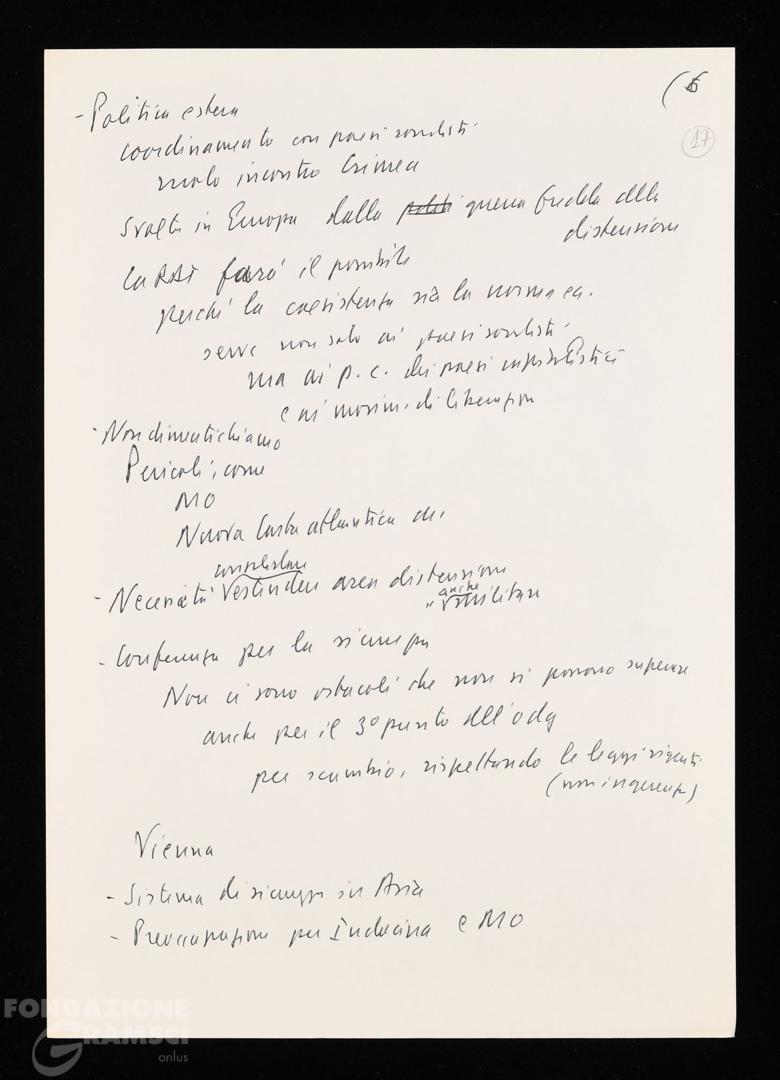 (6
17
- Politica estera
coordinamento con paesi socialisti
ruolo incontro Crimea
svolta in Europa dalla guerra fredda alla
distensione
la RDT farà il possibile
perché la coesistenza sia la norma ca.
serve non solo ai paesi socialisti
ma ai p.c. dei paesi capitalistici
e ai movim. di liberazione
- Non dimentichiamo
Pericoli, come
MO
Nuova Carta atlantica
consolidare
- Necessità estendere area distensione
anche militare
- Conferenza per la sicurezza
Non ci sono ostacoli che non si possono superare
anche per il 3º punto dell'odg
per scambio, rispettando le leggi vigenti
(non ingerenza)
Vienna
- Sistema di sicurezza in Asia
- Preoccupazione per Indocina e MO
FONDAZIONE
GRAMSCI
onlus